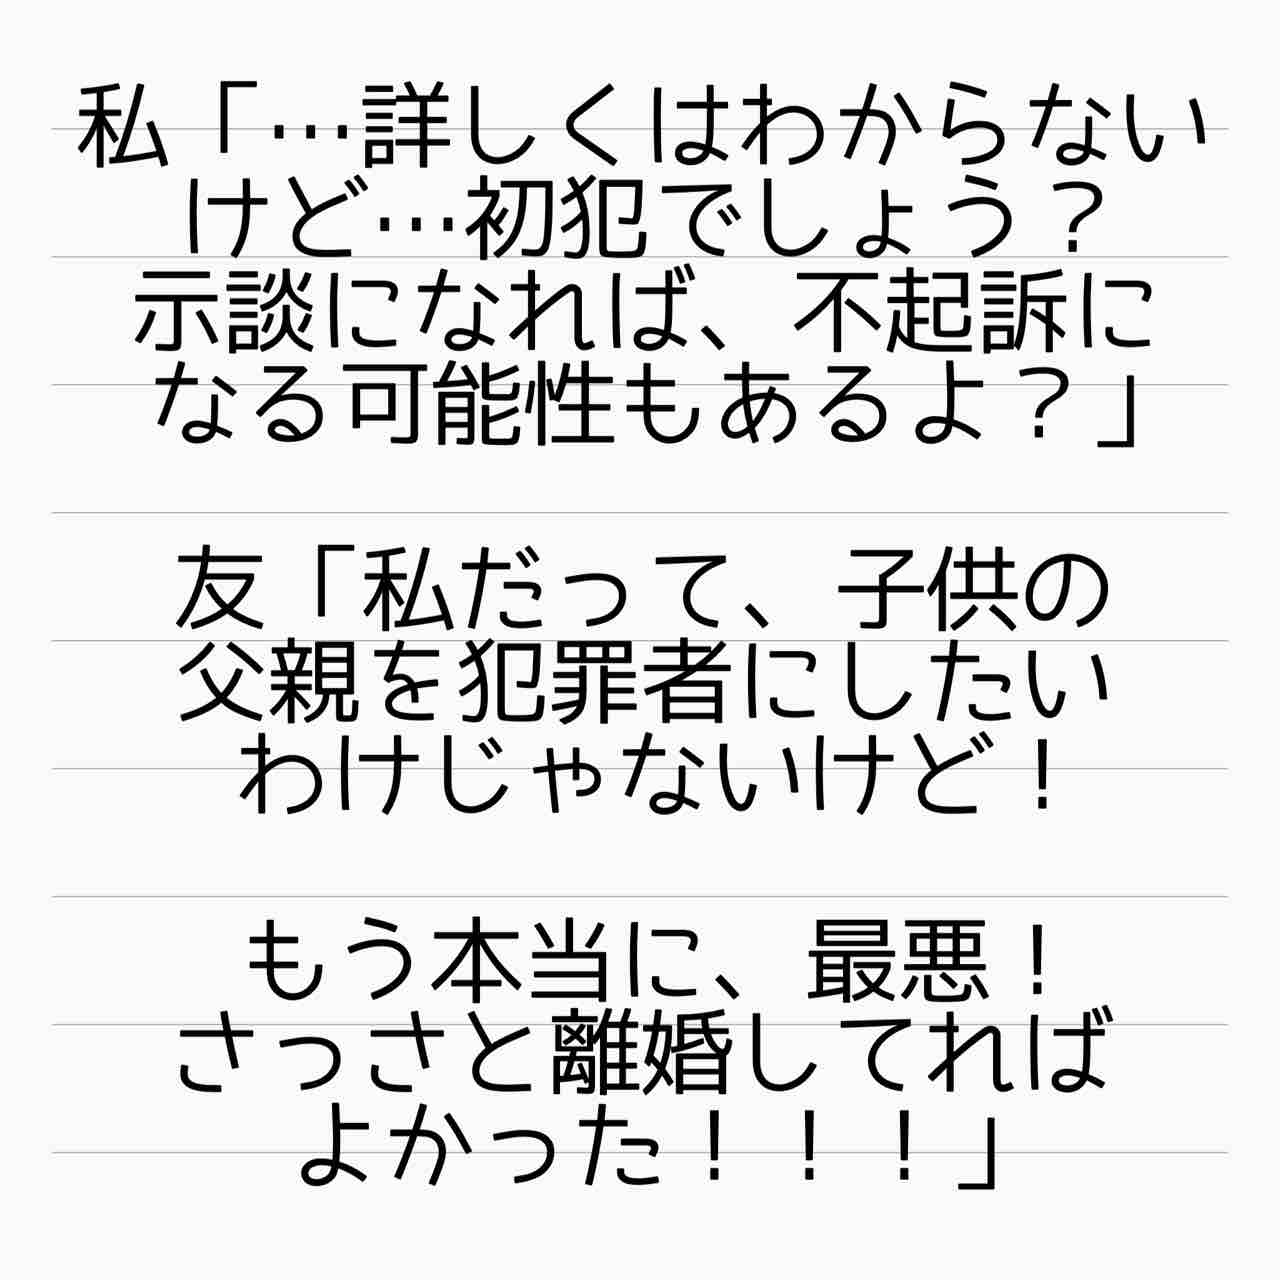 私「…詳しくはわからない
けど…初犯でしょう？
示談になれば、不起訴に
なる可能性もあるよ？」
友「私だって、子供の
父親を犯罪者にしたい
わけじゃないけど！
もう本当に、最悪！
さっさと離婚してれば
よかった！！！」